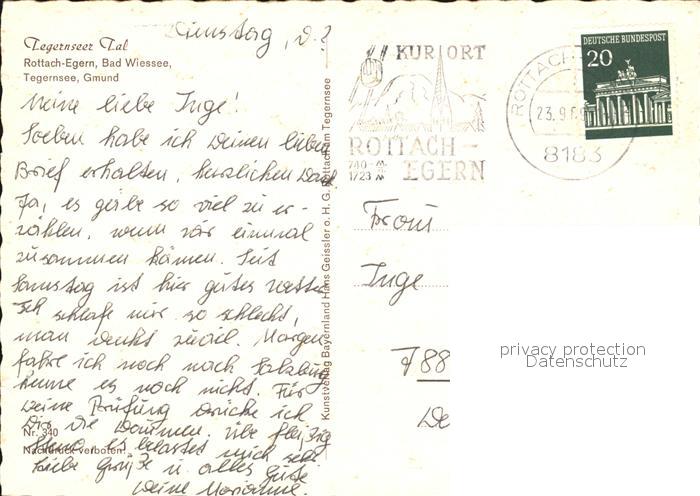 Dienstag, d. 2
Tegernseer Tal
Rottach-Egern, Bad Wiessee,
Tegernsee, Gmund
Meine liebe Inge!
Soeben habe ich Deinen lieben
Brief erhalten, herzlichen Dank
Ja, es gäbe so viel zu er-
zählen, wenn wir einmal
zusammen kämen. Seit
Samstag ist hier gutes Wetter
Ich schlafe nur so schlecht,
man denkt zuviel. Morgen
fahre ich noch nach Salzburg
kenne es noch nicht. Für
Deine Prüfung drücke ich
Dir die Daumen. Übe fleißig
Steno, es belastet mich sehr.
Liebe Grüße u. alles Gute
Deine Marianne.
Nr. 340
Nachdruck verboten!
Kunstverlag Bayernland Hans Geissler o. H. G. Rottach am Tegernsee
KURORT
ROTTACH-
EGERN
740-M
1723 M
ROTTACH
23.9.69
8183
DEUTSCHE BUNDESPOST
20
Frau
Inge
788
De
privacy protection
Datenschutz